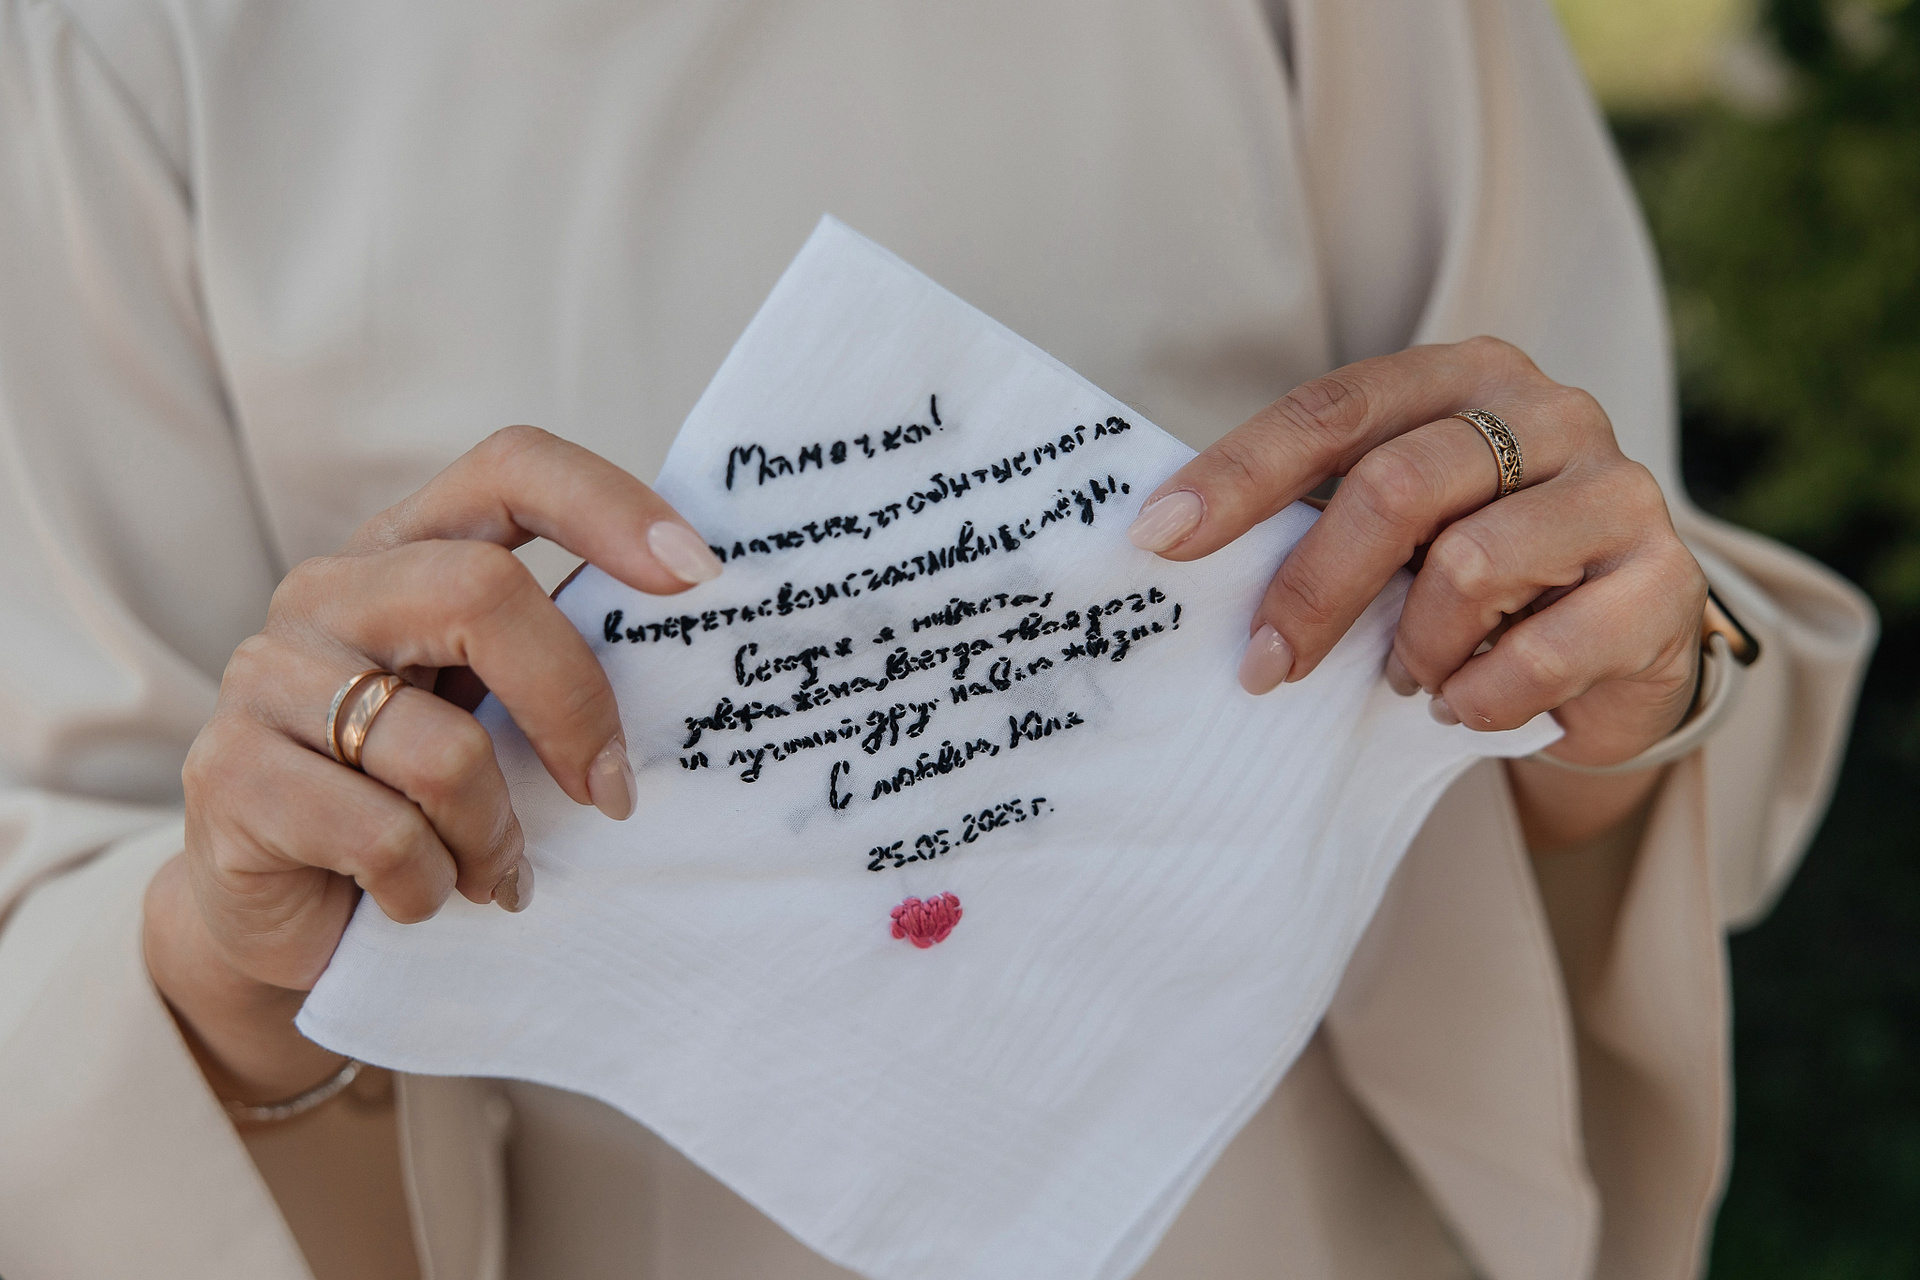 Мамочка!
платочек, чтобы ты смогла
вытереть свои счастливые слёзы.
Сегодня я невеста,
завтра жена, всегда твоя дочь
и лучший друг на всю жизнь!
С любовью, Юля
25.05.2025 г.